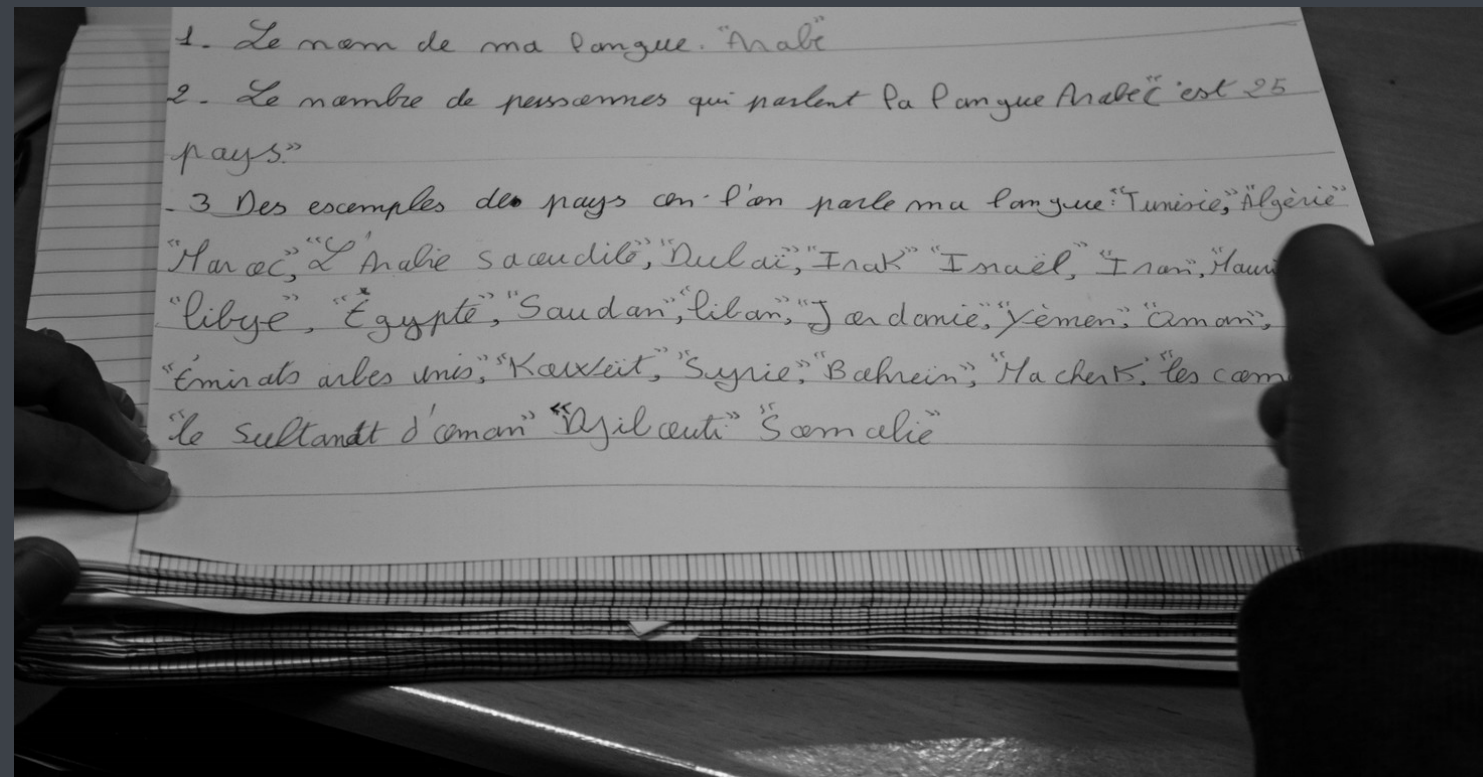 1. Le nom de ma langue. "Arabe"
2. Le nombre de personnes qui parlent la langue Arabe "c'est 25
pays."
- 3 Des escemples des pays ou l'on parle ma langue: "Tunisie", "Algèrie"
"Maroc", "L'Arabie saoudite", "Dubaï", "Irak" "Israël", "Iran", "Mauri
"libye", "Égypte", "Soudan", "liban", "Jordanie", "Yèmen", "Oman",
"Émirats arbes unis", "Kowxeit", "Syrie", "Bahrein", "Macherk", "les com
"le sultandt d'oman" "Djibouti" "Somalie"